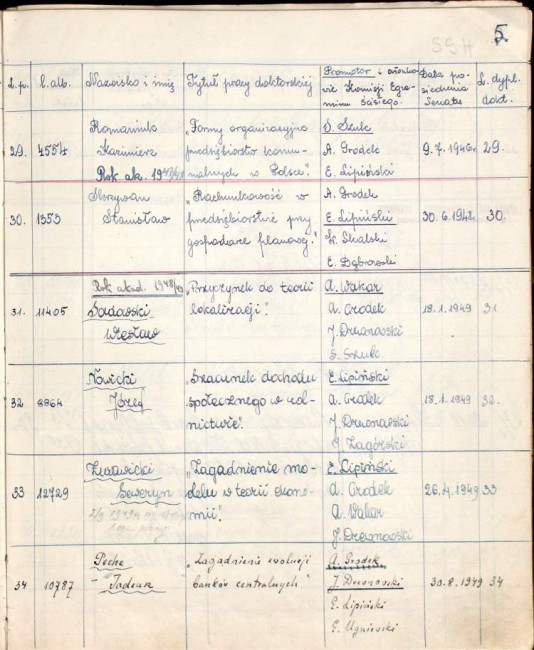 5.
SGH
L.p.
L. alb.
Nazwisko i imię
Tytuł pracy doktorskiej
Promotor i członko-
wie Komisji Egza-
minu ścisłego.
Data po-
siedzenia
Senatu
L. dypl.
dokt.
29.
4554
Romaniuk
Kazimierz
Rok ak. 1947/48
„Formy organizacyjne
przedsiębiorstw komu-
nalnych w Polsce".
S. Szulc
A. Grodek
E. Lipiński
9.7.1946r.
29.
30.
1353
Skrzywan
Stanisław
„Rachunkowość w
przedsiębiorstwie przy
gospodarce planowej."
A. Grodek
E. Lipiński
W. Skalski
E. Dąbrowski
30.6.1948.
30.
31.
11405
Rok akad. 1948/49
Sadowski
Wiesław
„Przyczynek do teorii
lokalizacji".
A. Wakar
A. Grodek
J. Drewnowski
S. Szulc
18.1.1949
31
32
8964
Nowicki
Józef
„Szacunek dochodu
społecznego w rol-
nictwie".
E. Lipiński
A. Grodek
J. Drewnowski
J. Zagórski
18.1.1949
32.
33
12729
Żurawicki
Seweryn
„Zagadnienie mo-
delu w teorii ekono-
mii".
E. Lipiński
A. Grodek
A. Wakar
J. Drewnowski
26.4.1949
33
34
10787
Peche
Tadeusz
„Zagadnienia ewolucji
banków centralnych"
A. Grodek
J. Drewnowski
E. Lipiński
30.8.1949
34